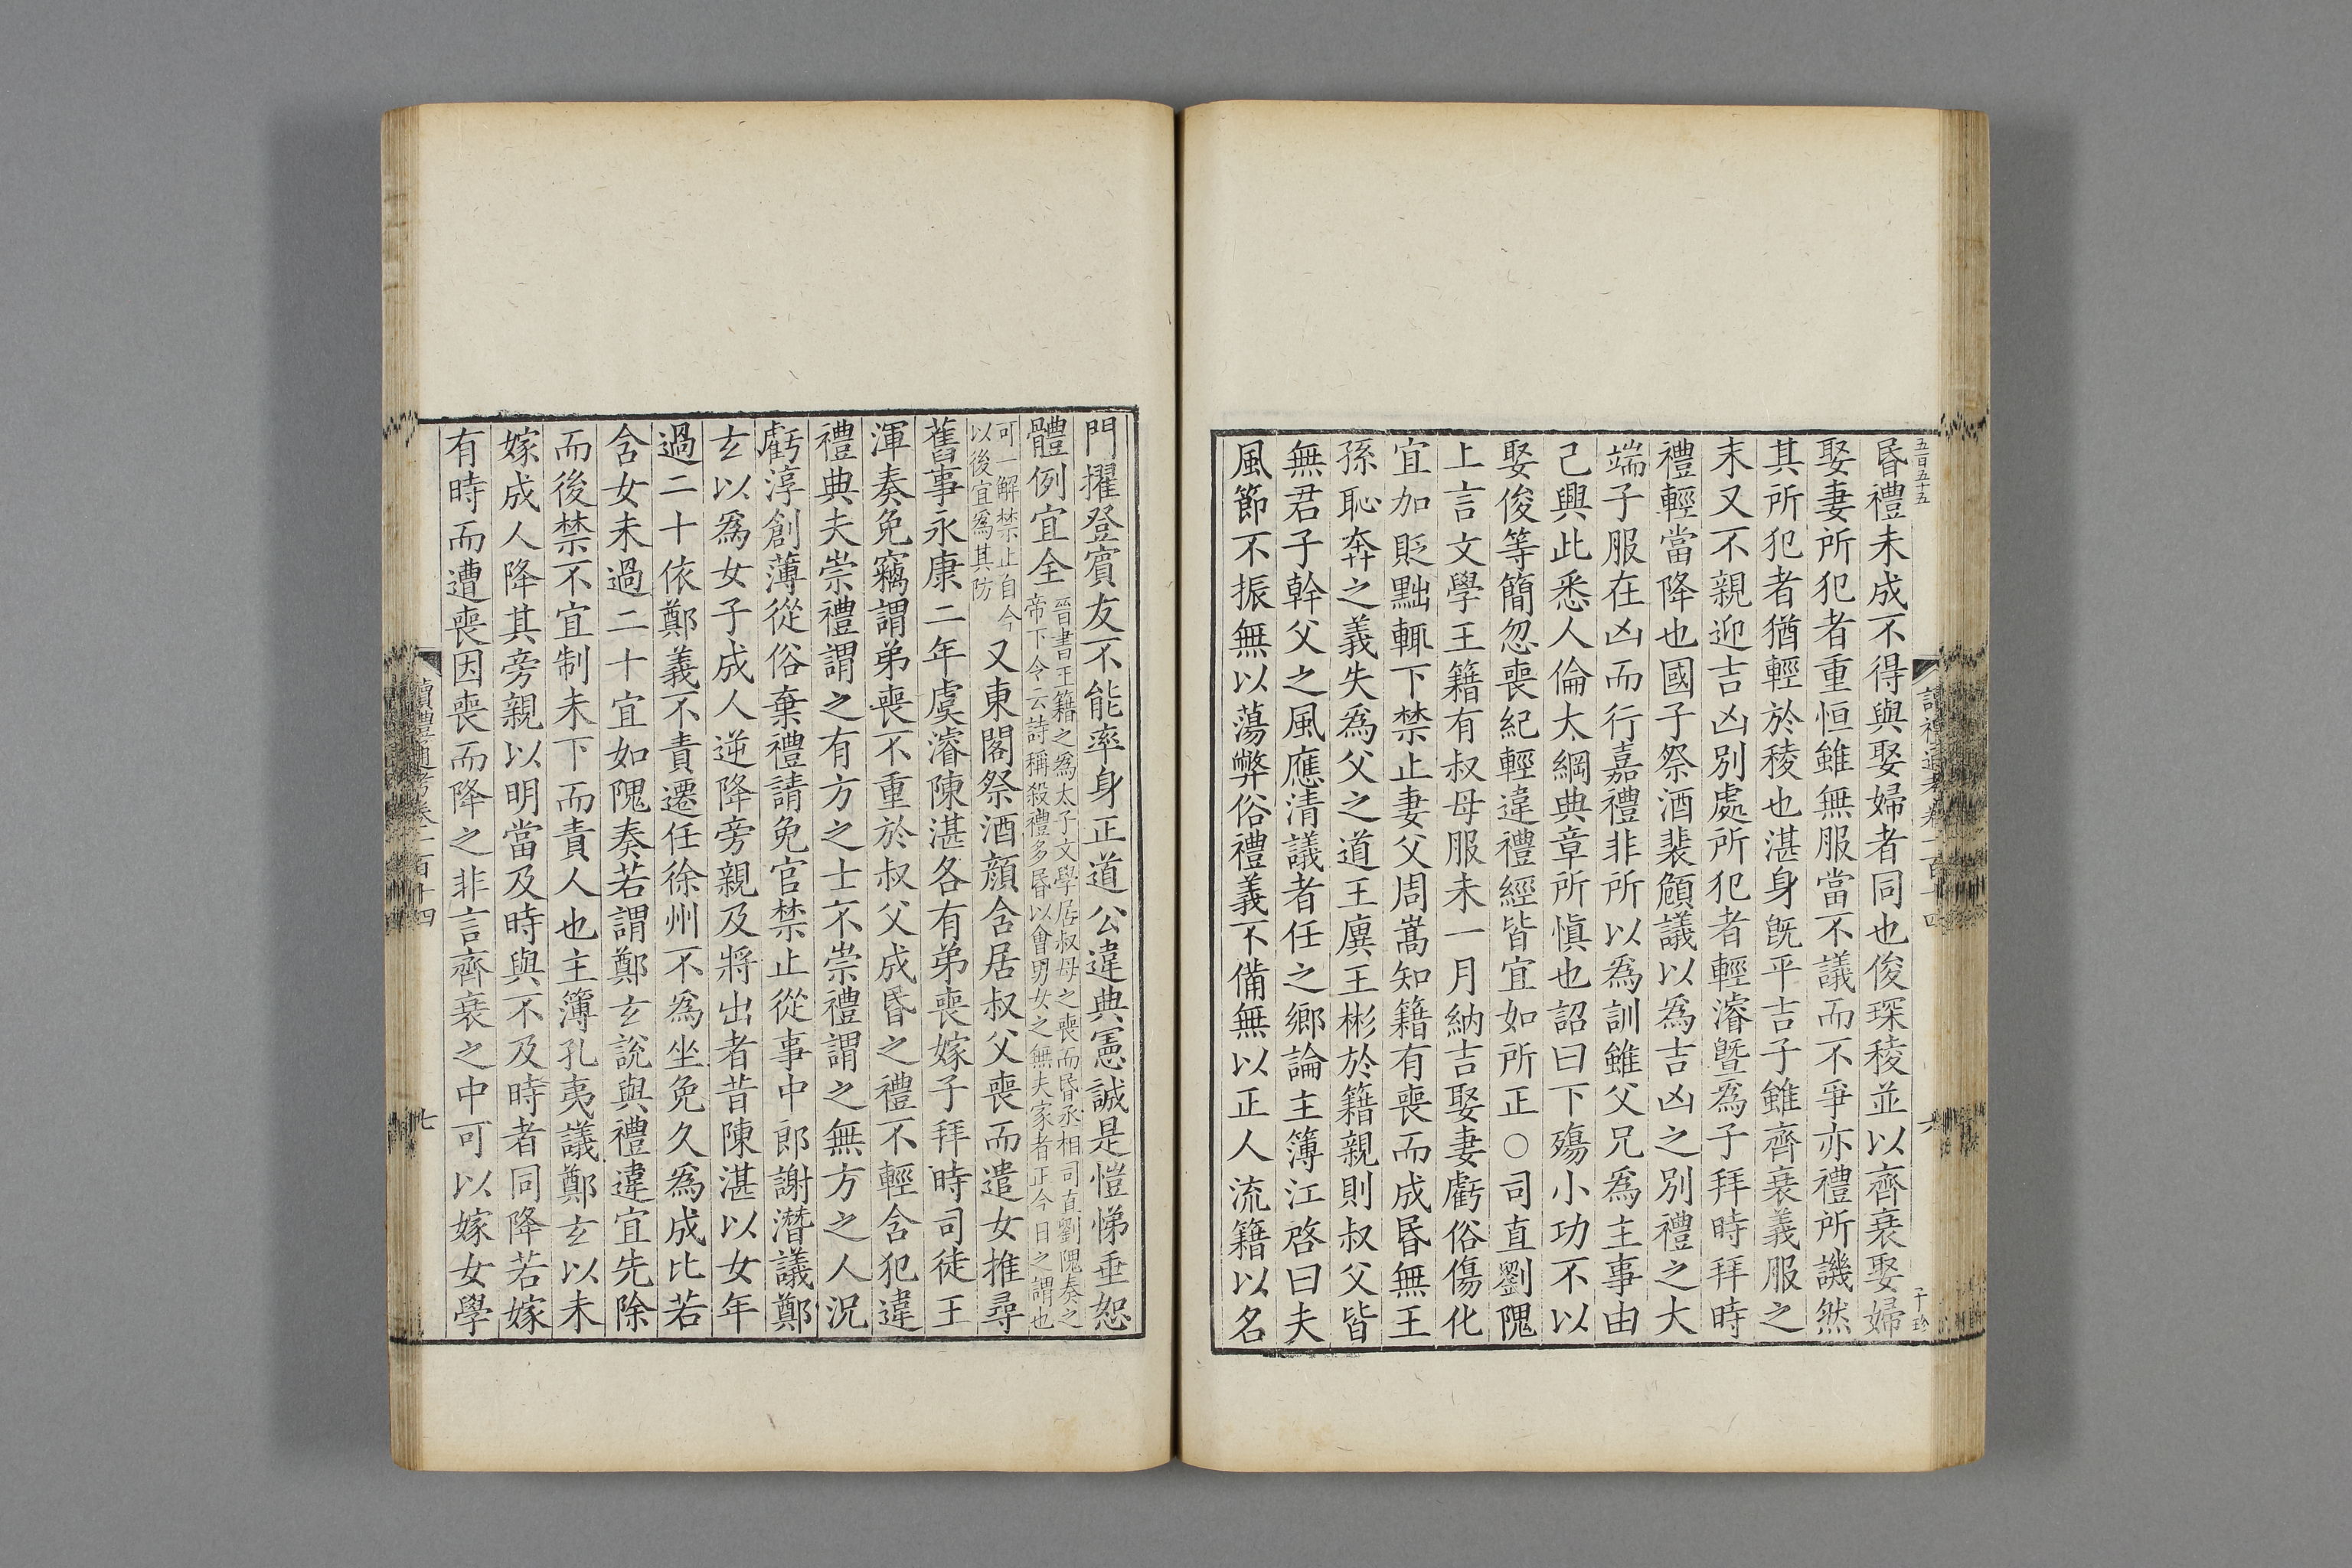 五百五十五
讀禮通考卷一百十四
六
干珍
昏禮未成不得與娶婦者同也俊琛稜並以齊衰娶婦
娶妻所犯者重恒雖無服當不議而不爭亦禮所譏然
其所犯者猶輕於稜也湛身既平吉子雖齊衰義服之
末又不親迎吉凶別處所犯者輕濬曁爲子拜時拜時
禮輕當降也國子祭酒裴頠議以爲吉凶之別禮之大
端子服在凶而行嘉禮非所以爲訓雖父兄爲主事由
己興此悉人倫大綱典章所慎也詔曰下殤小功不以
娶俊等簡忽喪紀輕違禮經皆宜如所正○司直劉隗
上言文學王籍有叔母服未一月納吉娶妻虧俗傷化
宜加貶黜輒下禁止妻父周嵩知籍有喪而成昏無王
孫恥奔之義失爲父之道王廙王彬於籍親則叔父皆
無君子幹父之風應清議者任之鄉論主簿江啓曰夫
風節不振無以蕩弊俗禮義不備無以正人流籍以名
門擢登賓友不能率身正道公違典憲誠是愷悌垂恕
體例宜全晉書王籍之爲太子文學居叔母之喪而昏丞相司直劉隗奏之
帝下令云詩稱殺禮多昏以會男女之無夫家者正今日之謂也
可一解禁止自今
以後宜爲其防
又東閣祭酒顔含居叔父喪而遣女推尋
舊事永康二年虞濬陳湛各有弟喪嫁子拜時司徒王
渾奏免竊謂弟喪不重於叔父成昏之禮不輕含犯違
禮典夫崇禮謂之有方之士不崇禮謂之無方之人況
虧淳創薄從俗棄禮請免官禁止從事中郎謝潛議鄭
玄以爲女子成人逆降旁親及將出者昔陳湛以女年
過二十依鄭義不責遷任徐州不爲坐免久爲成比若
含女未過二十宜如隗奏若謂鄭玄說與禮違宜先除
而後禁不宜制未下而責人也主簿孔夷議鄭玄以未
嫁成人降其旁親以明當及時與不及時者同降若嫁
有時而遭喪因喪而降之非言齊衰之中可以嫁女學
讀禮通考卷一百十四
七